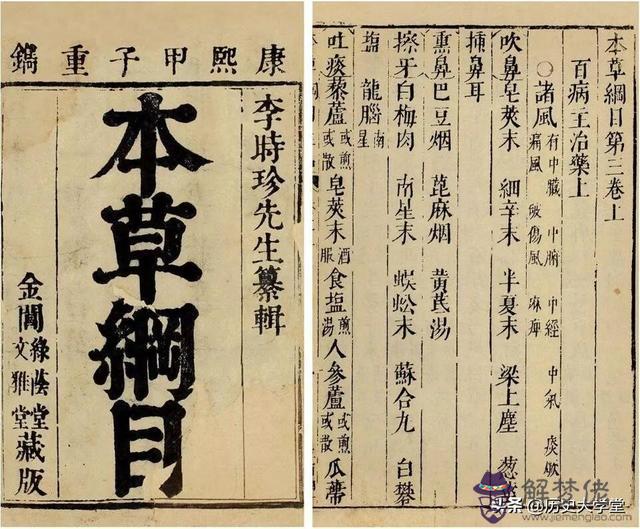 康熙甲子重鐫
李時珍先生纂輯
本草綱目
金閶綠蔭堂文雅堂藏版
本草綱目第三卷上
百病主治藥上
○諸風 有中臟 中腑 中經 中氣 痰厥
痛風 破傷風 麻痺
吹鼻皂莢末 細辛末 半夏末 梁上塵 葱莖
插鼻耳
熏鼻巴豆烟 蓖麻烟 黄芪湯
擦牙白梅肉 南星末 蜈蚣末 蘇合丸 白礬
塩 龍腦南星
吐痰藜蘆或煎或散 皂莢末酒服 食塩煎湯 人參蘆或煎或散 瓜蒂
头条 @历史大学堂
解梦佬
www.jiemenglao.com